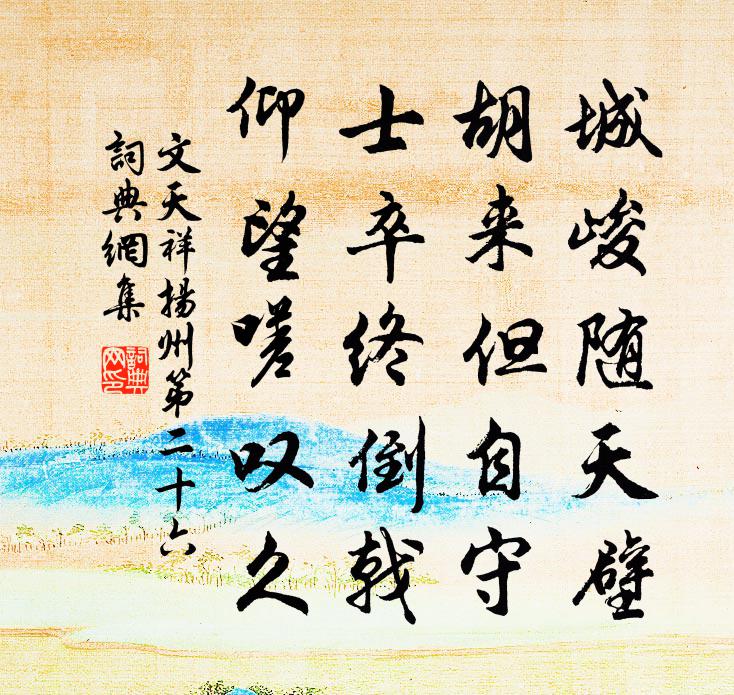 城峻随天壁
胡来但自守
士卒终倒戟
仰望嗟叹久
文天祥扬州第二十六
詞典網集
詞典网印